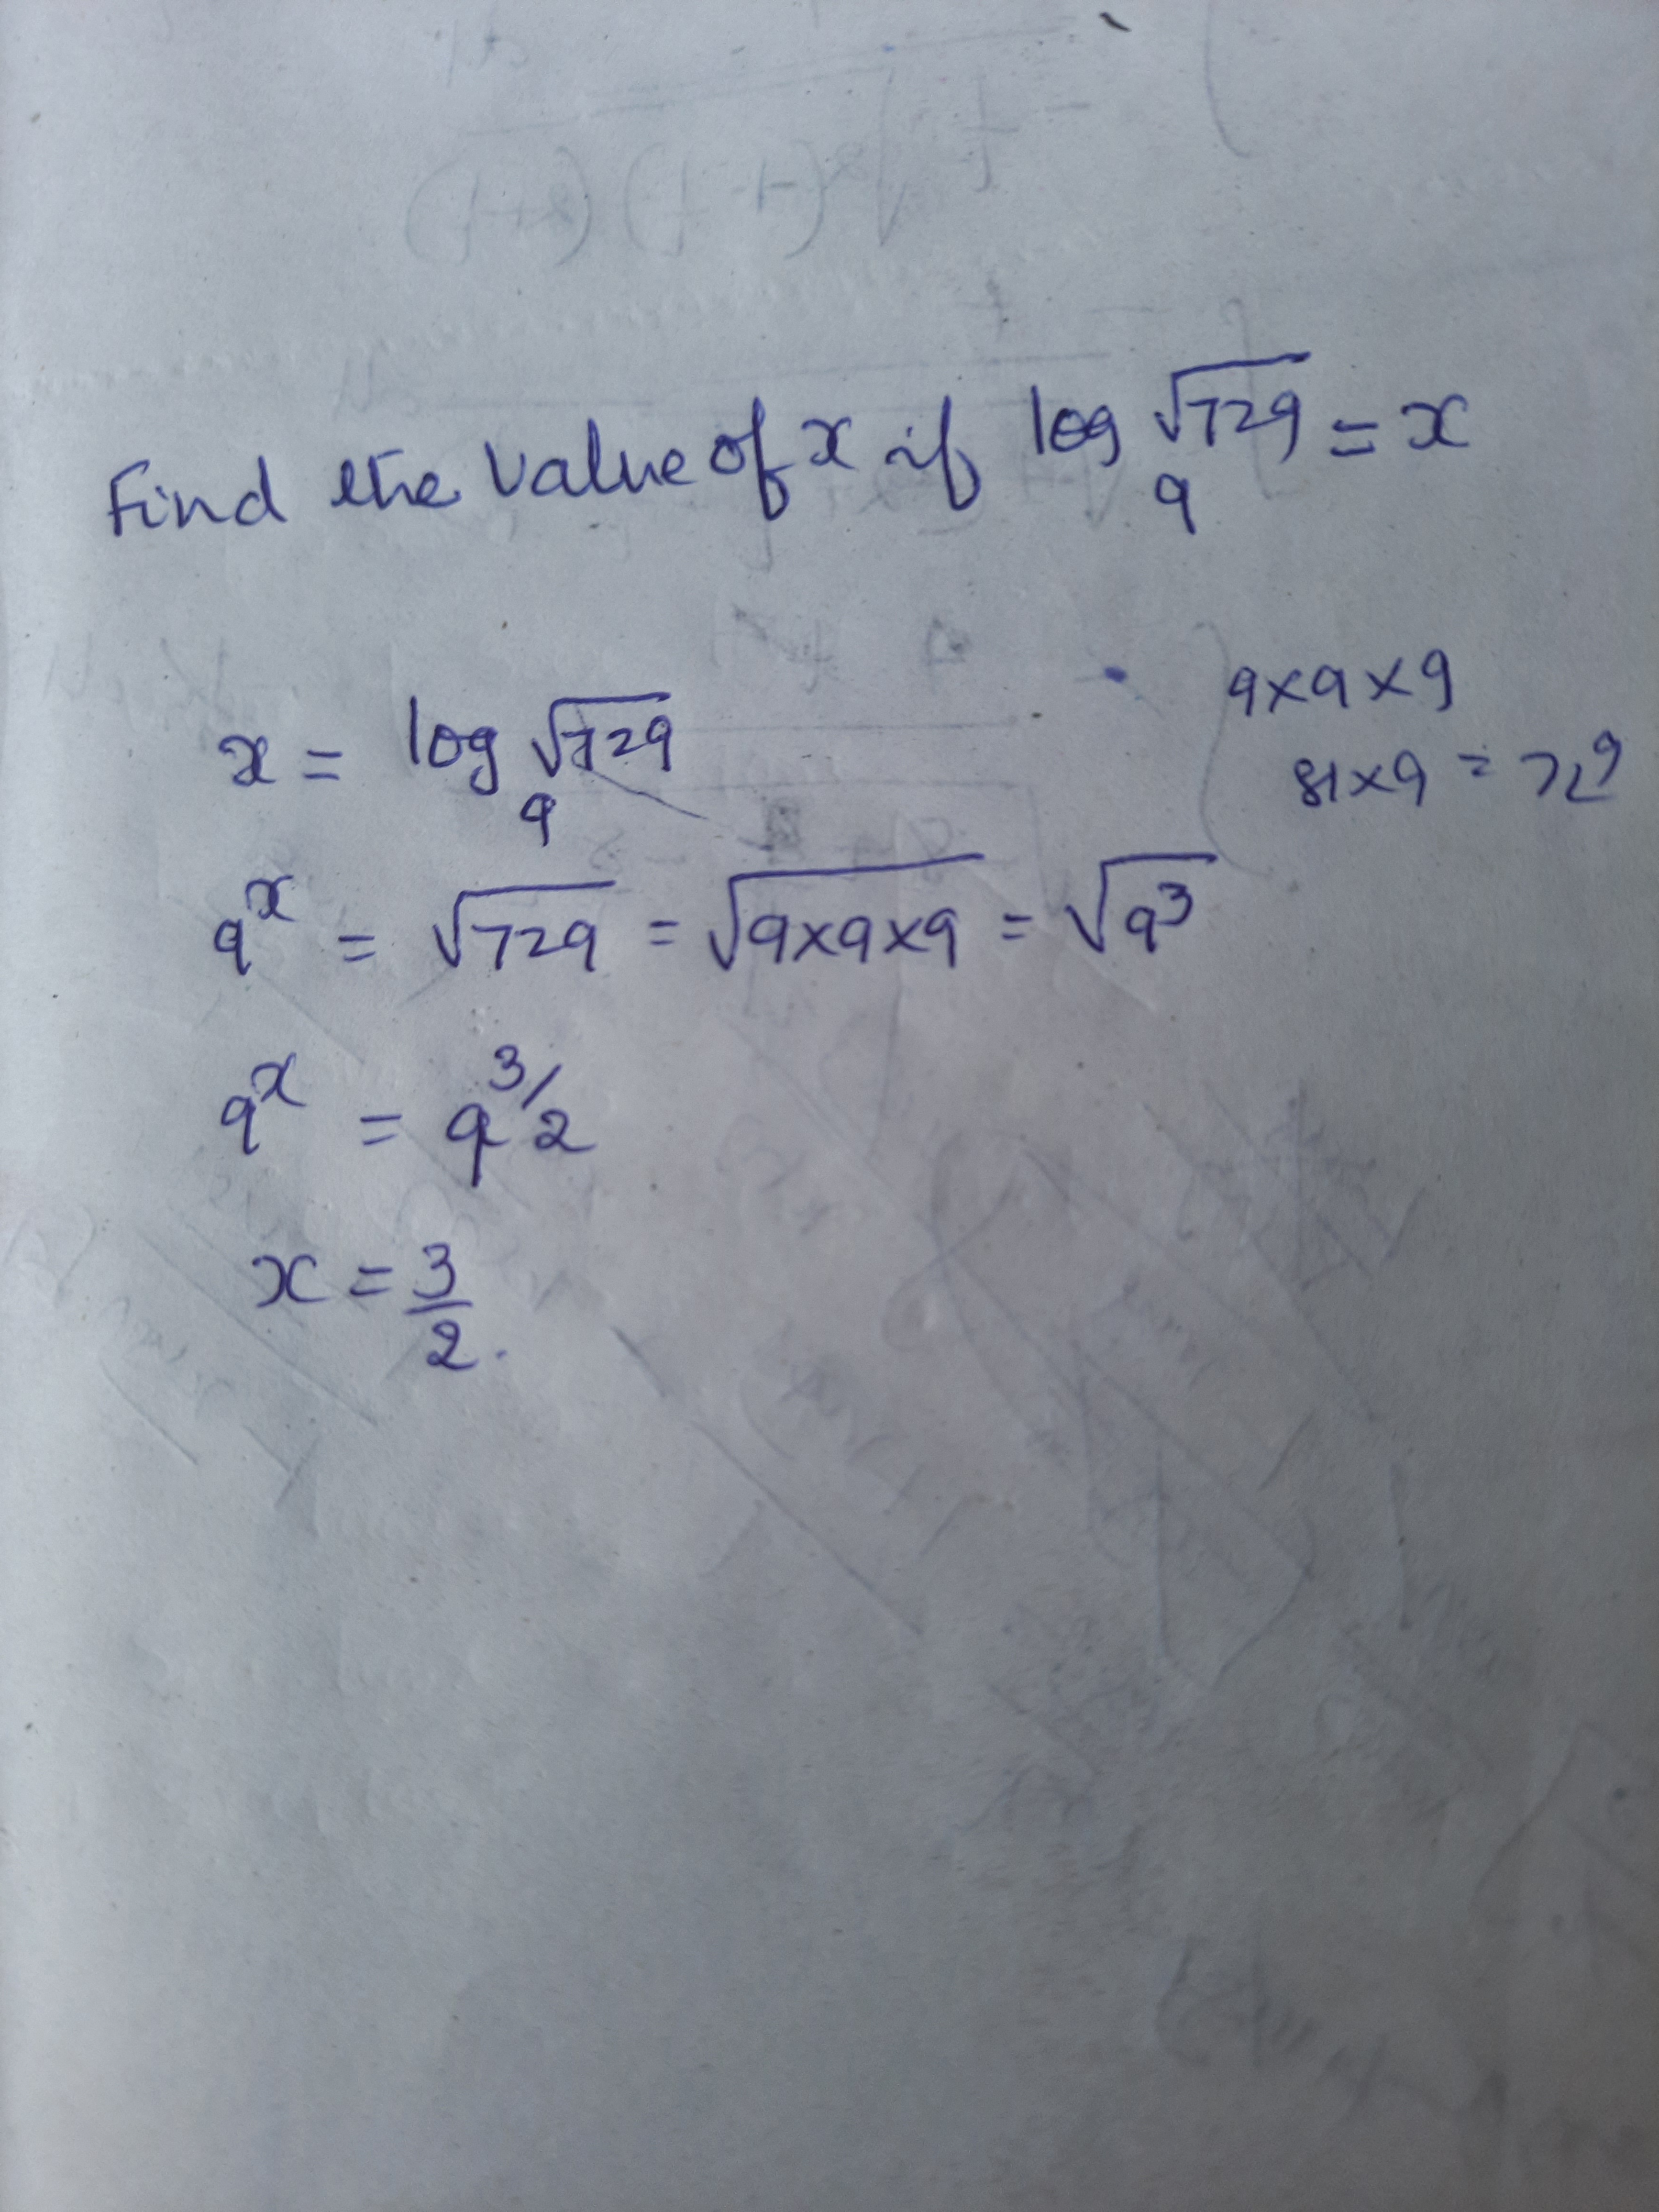 Find the value of x if log₉ √729 = x
x = log₉ √729
9 x 9 x 9
81 x 9 = 729
9ˣ = √729 = √9x9x9 = √9³
9ˣ = 9^3/2
x = 3/2.